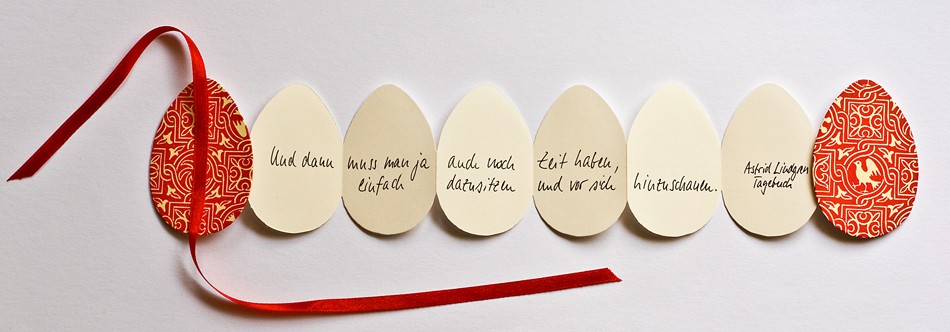 Und dann
muss man ja
einfach
auch noch
dazusitzen
Zeit haben,
und vor sich
hinzuschauen.
Astrid Lindgren
Tagebuch